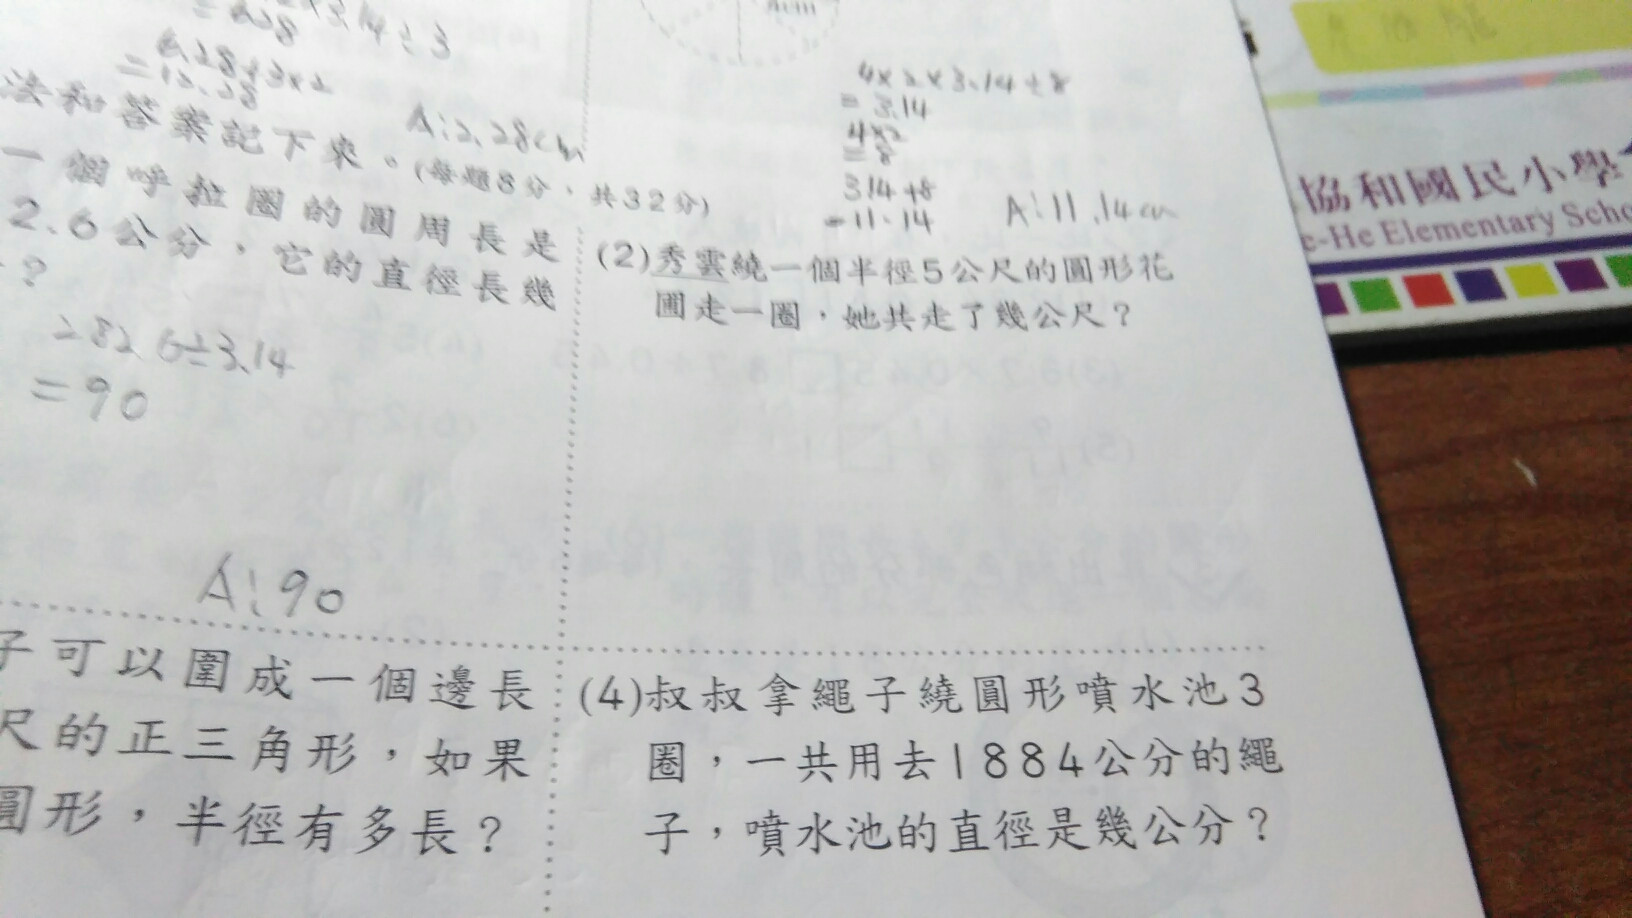 ×3.14÷3
=6.28
6.28÷3×2
A:2.28cm
4×2×3.14÷8
=3.14
4×2
=8
3.14+8
=11.14
A:11.14cm
法和答案記下來。(每題8分,共32分)
一個呼拉圈的圓周長是
2.6公分,它的直徑長幾
?
282.6÷3.14
=90
A:90
(2)秀雲繞一個半徑5公尺的圓形花
圃走一圈,她共走了幾公尺?
子可以圍成一個邊長
尺的正三角形,如果
圓形,半徑有多長?
(4)叔叔拿繩子繞圓形噴水池3
圈,一共用去1884公分的繩
子,噴水池的直徑是幾公分?
協和國民小學
e-He Elementary Scho